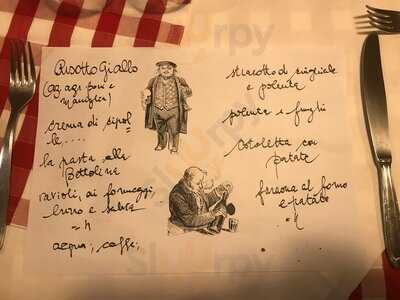 Risotto Giallo
crema di cipol
le....
la pasta alla
ravioli, ai formaggi,
burro e salvia
acqua, caffè,
stracotto di cinghiale
e polenta
polenta e funghi
costoletta con
patate
faraona al forno
e patate